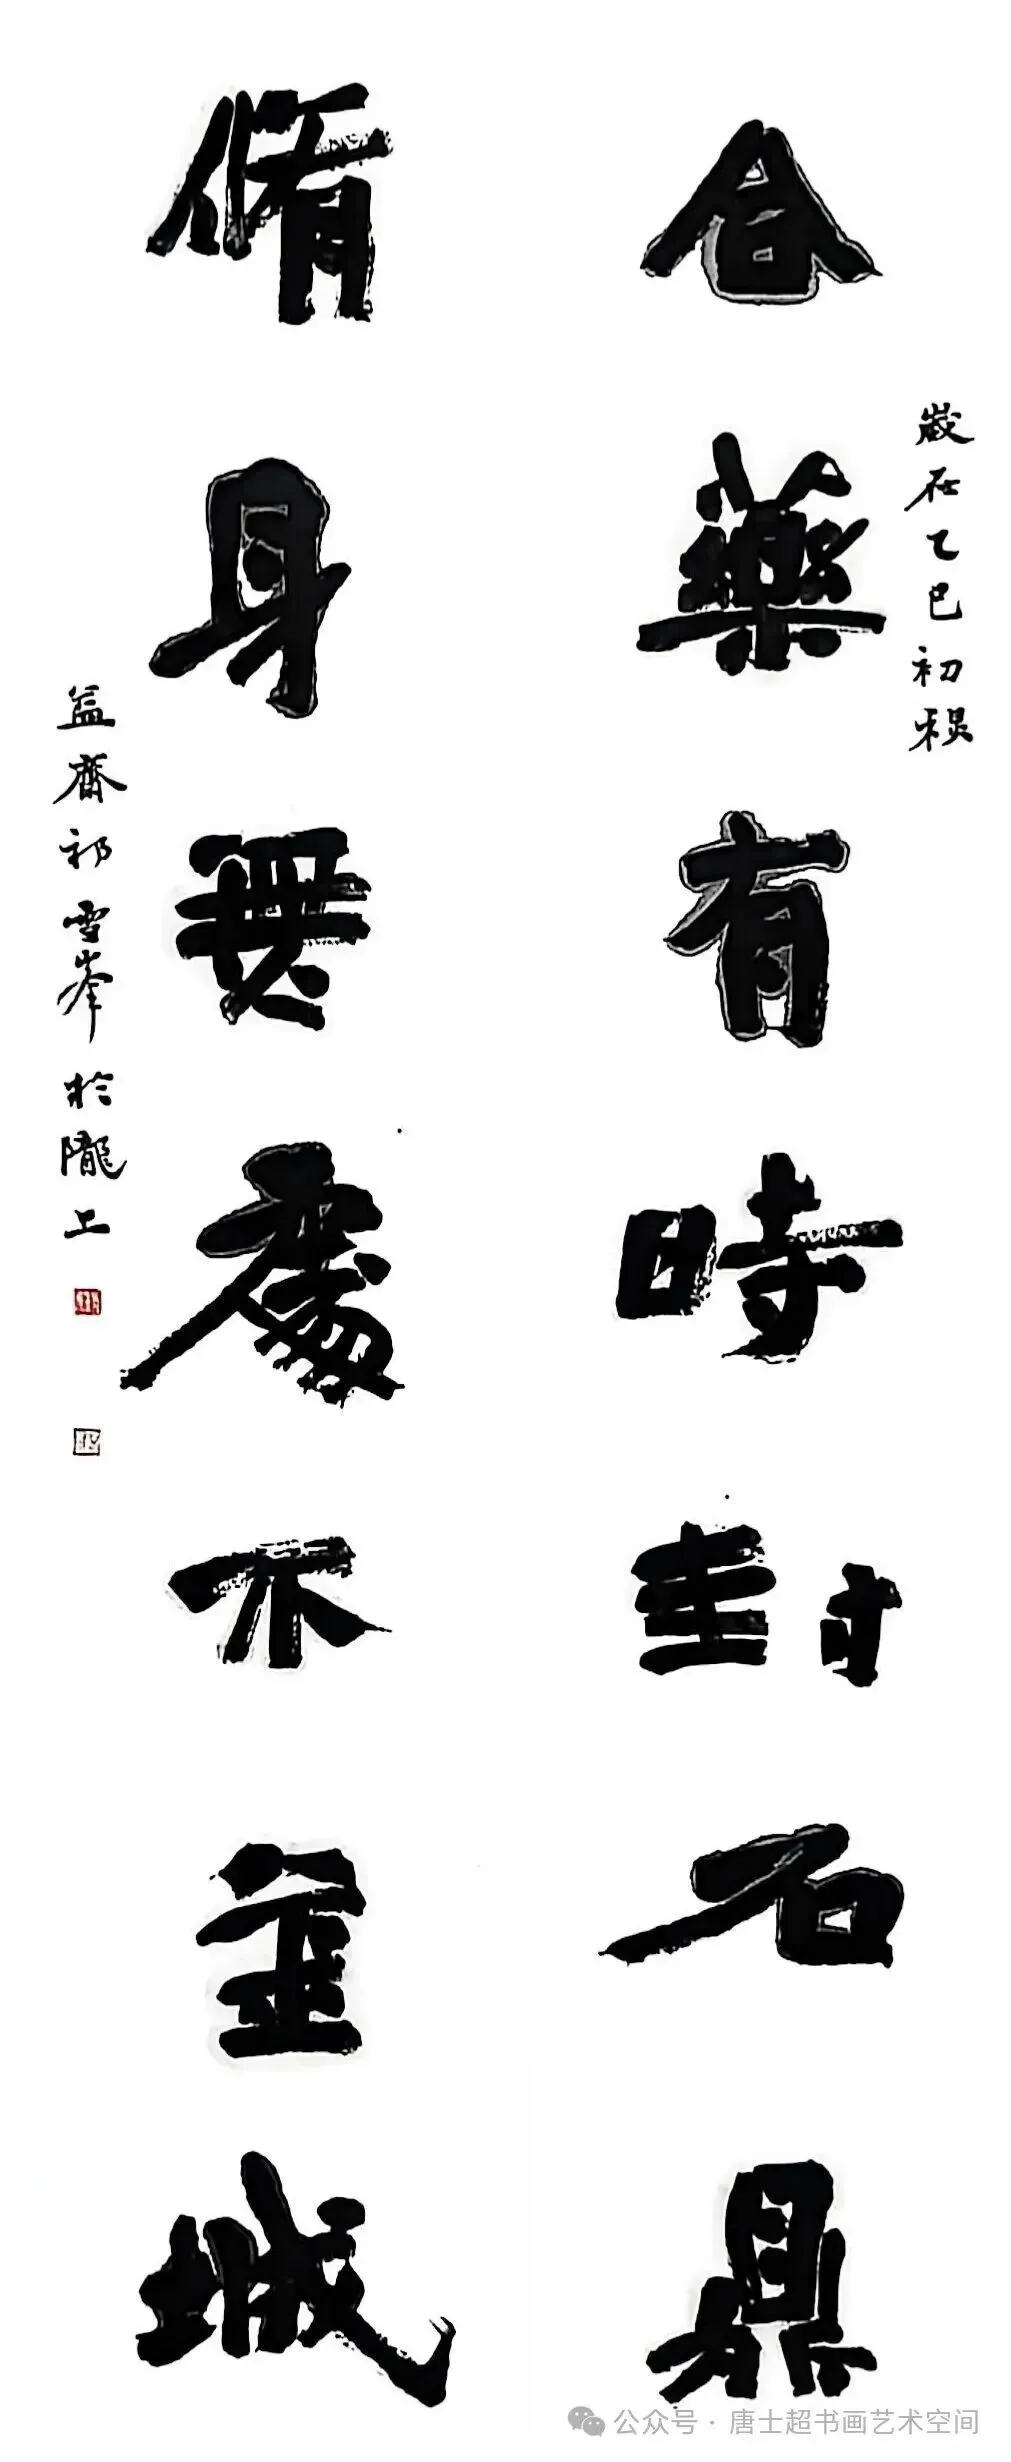 合藥有時封石鼎
歲在乙巳初
脩身無處不城
益齋祁雪峯於隴上
公众号·唐士超书画艺术空间